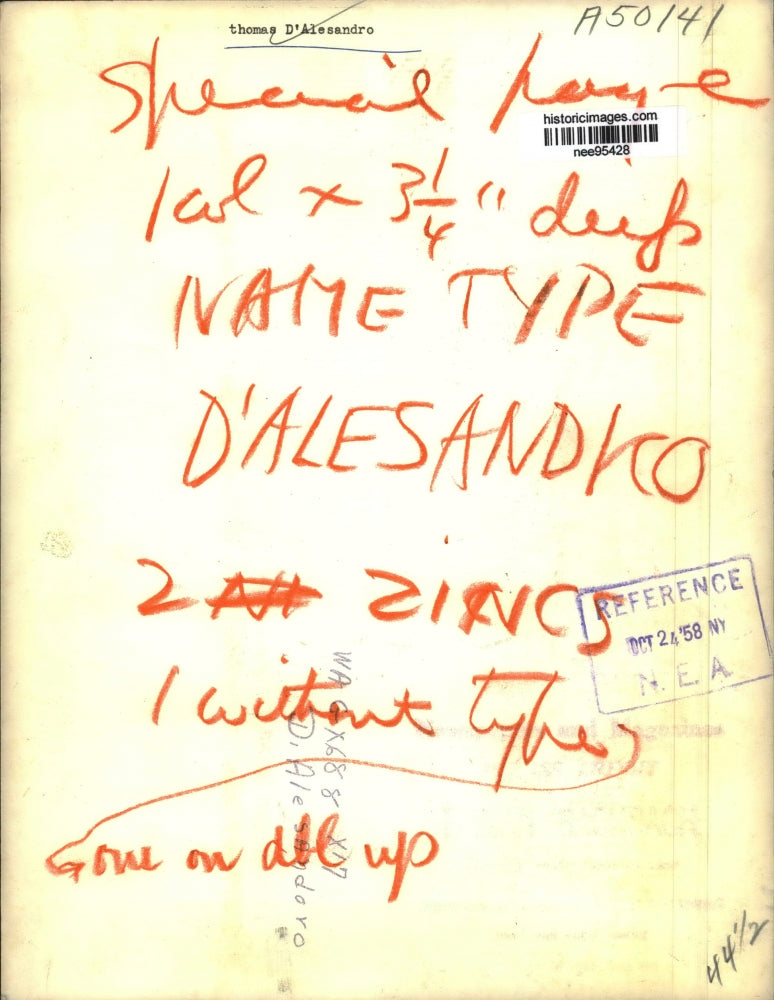 thomas D'Alesandro
A50141
special page
historicimages.com
nee95428
1 col x 3 1/4" deep
NAME TYPE
D'ALESANDRO
2 ZINCS
REFERENCE
OCT 24 '58 NY
N. E. A.
1 without type
one on dbl up
D. Alesandoro
44 1/2